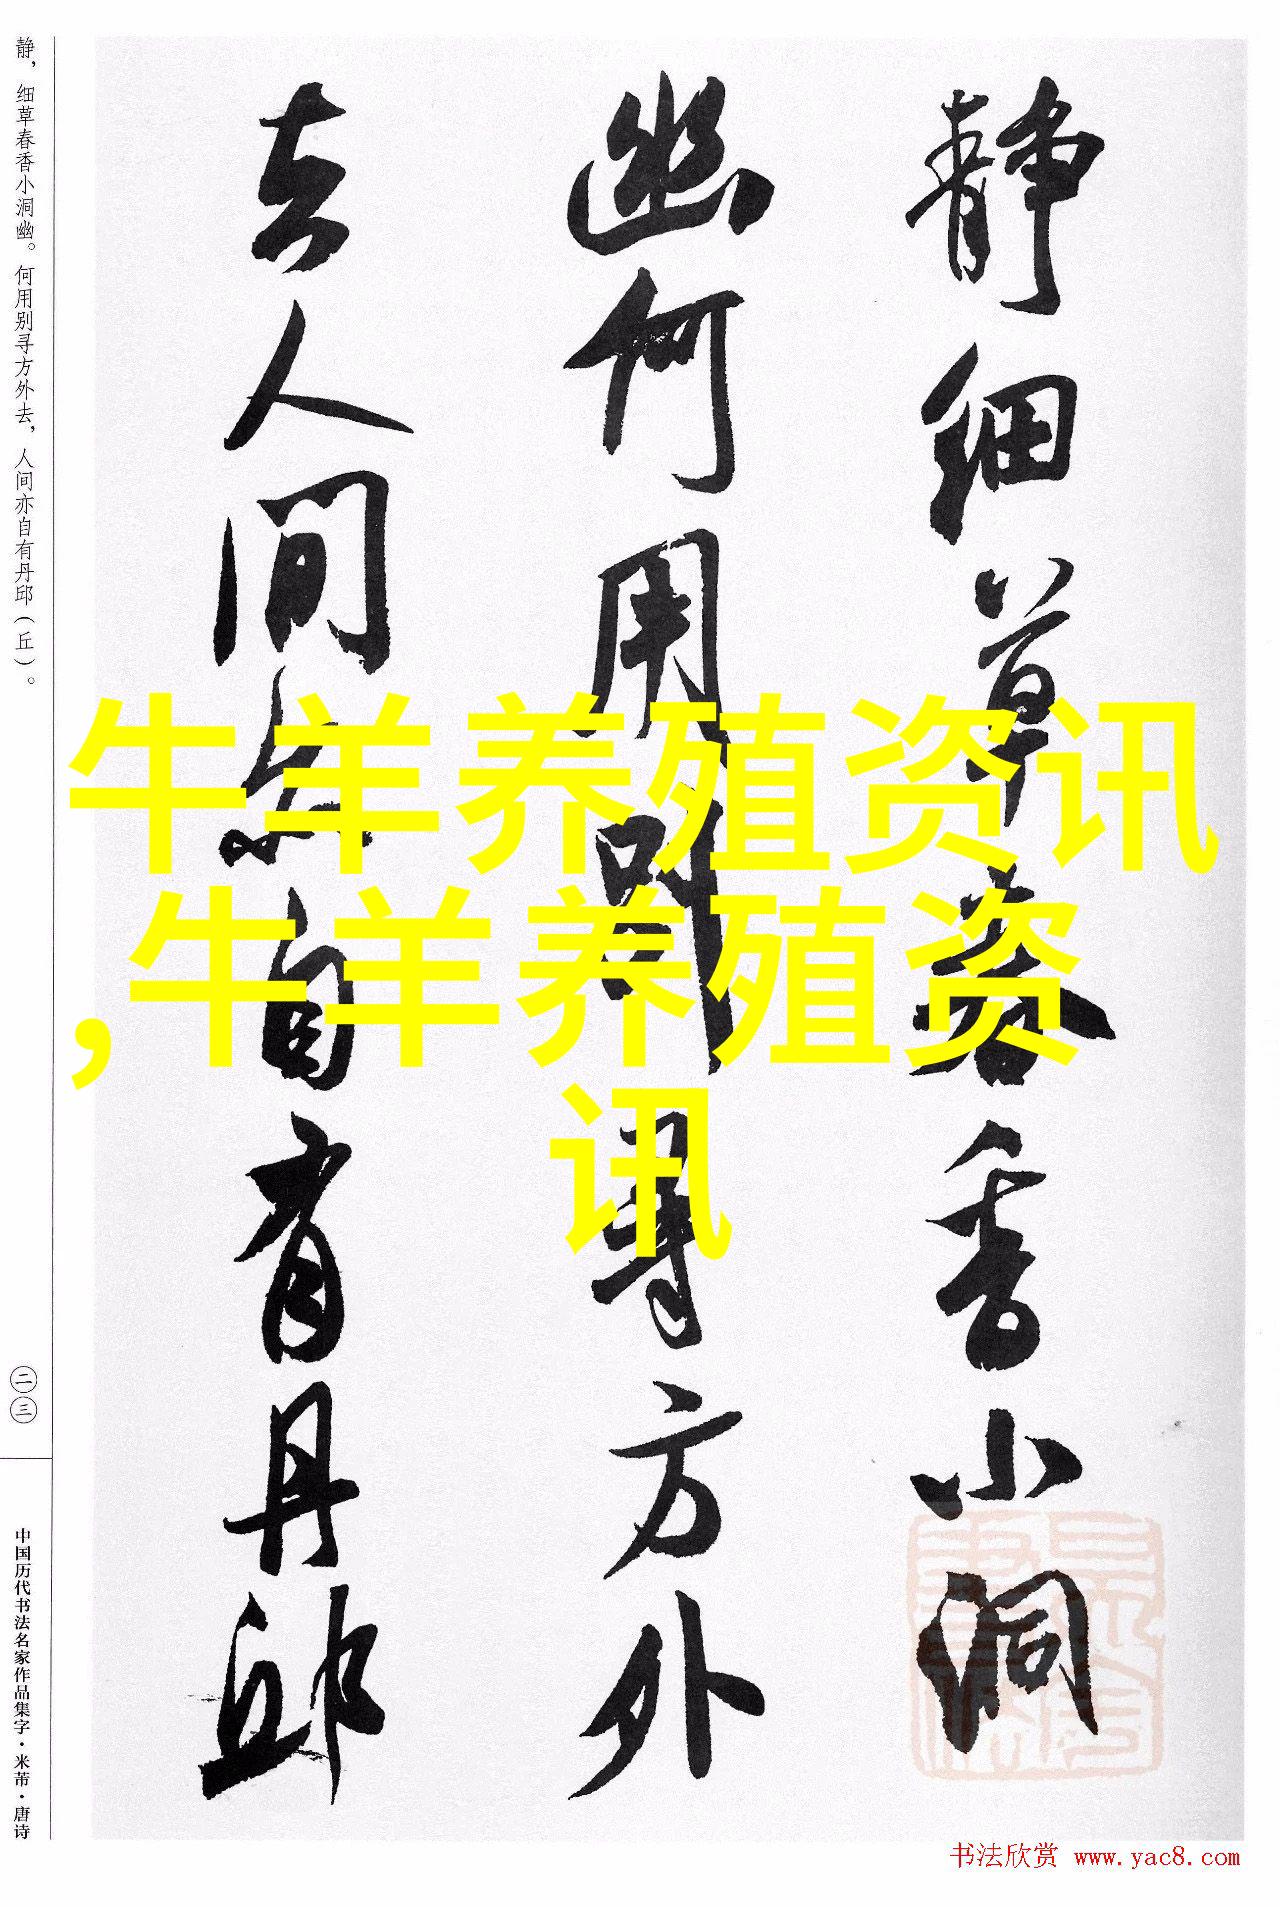 静细草春香小洞
幽何用别寻方外
去人间亦自有丹邱
静，细草春香小洞幽。何用别寻方外去，人间亦自有丹邱（丘）。
二三
中国历代书法名家作品集字·米芾·唐诗
牛羊养殖资讯
，牛羊养殖资
讯
书法欣赏 www.yac8.com